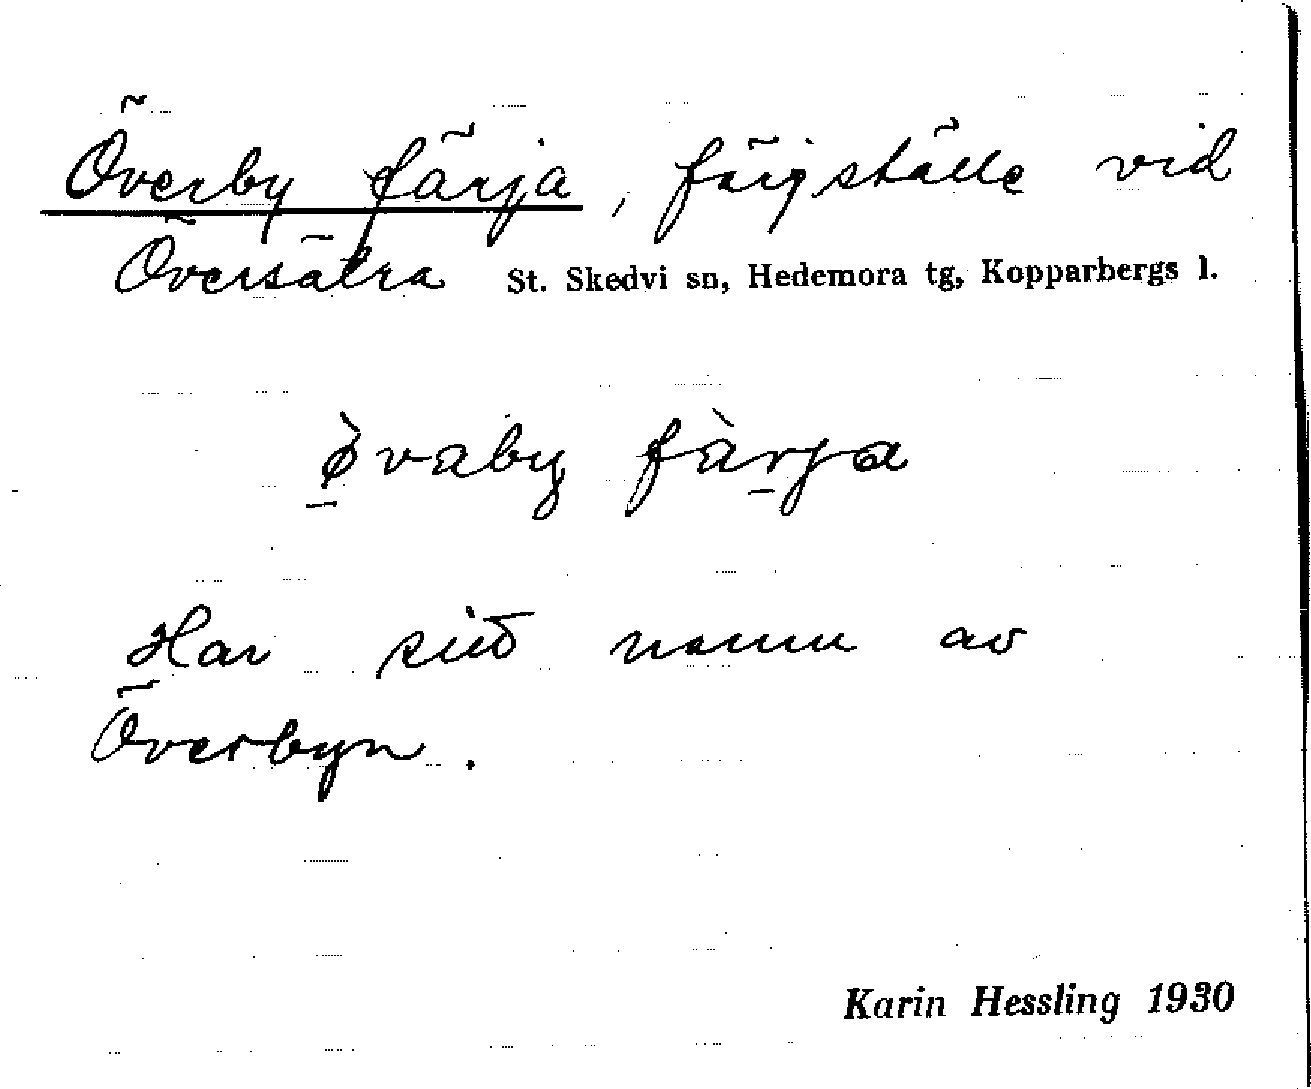 Överby färja, färjställe vid
Översätra St. Skedvi sn, Hedemora tg, Kopparbergs l.
ø̀vaby fàrja
Har sitt namn av
Överbyn.
Karin Hessling 1930